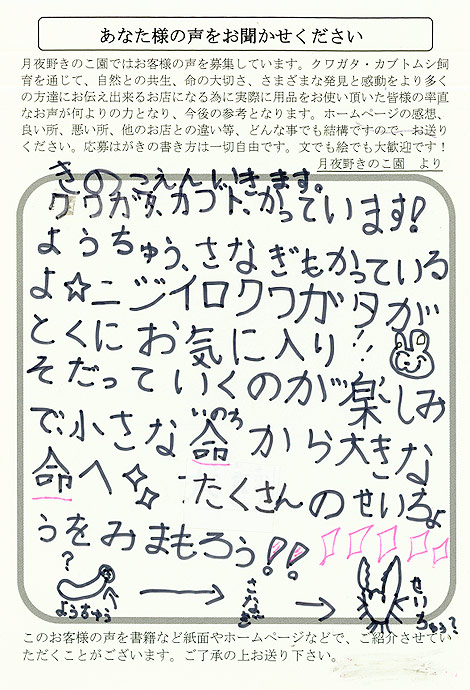 あなた様の声をお聞かせください
月夜野きのこ園ではお客様の声を募集しています。クワガタ・カブトムシ飼
育を通じて、自然との共生、命の大切さ、さまざまな発見と感動をより多く
の方達にお伝え出来るお店になる為に実際に用品をお使い頂いた皆様の率直
なお声が何よりの力となり、今後の参考となります。ホームページの感想、
良い所、悪い所、他のお店との違い等、どんな事でも結構ですので、お送り
ください。応募はがきの書き方は一切自由です。文でも絵でも大歓迎です！
月夜野きのこ園 より
きのこえんいきます。
クワガタ、カブト、かっています!
ようちゅう、さなぎもかっている
よ☆ニジイロクワガタが
とくにお気に入り!!
そだっていくのが楽しみ
で、小さな命から大きな
いのち
命へ たくさんのせいちょ
うをみまもろう!!
?
ようちゅう
さなぎ
せいちゅう?
このお客様の声を書籍など紙面やホームページなどで、ご紹介させてい
ただくことがございます。ご了承の上お送り下さい。